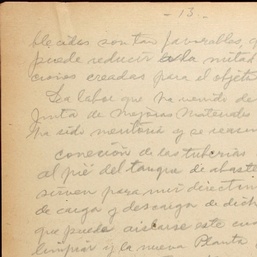 - 13. -
blecidas son tan favorables, q
puede reducir a la mitad
ciones creadas para el objeto
La labor que ha venido de
Junta de Mejoras Materiales
ha sido meritoria y se
conección de las tuberias
al pié del tanque de abaste
sirven para
de carga y descarga de dich
que pueda aislarse este
limpiar y la nueva Planta